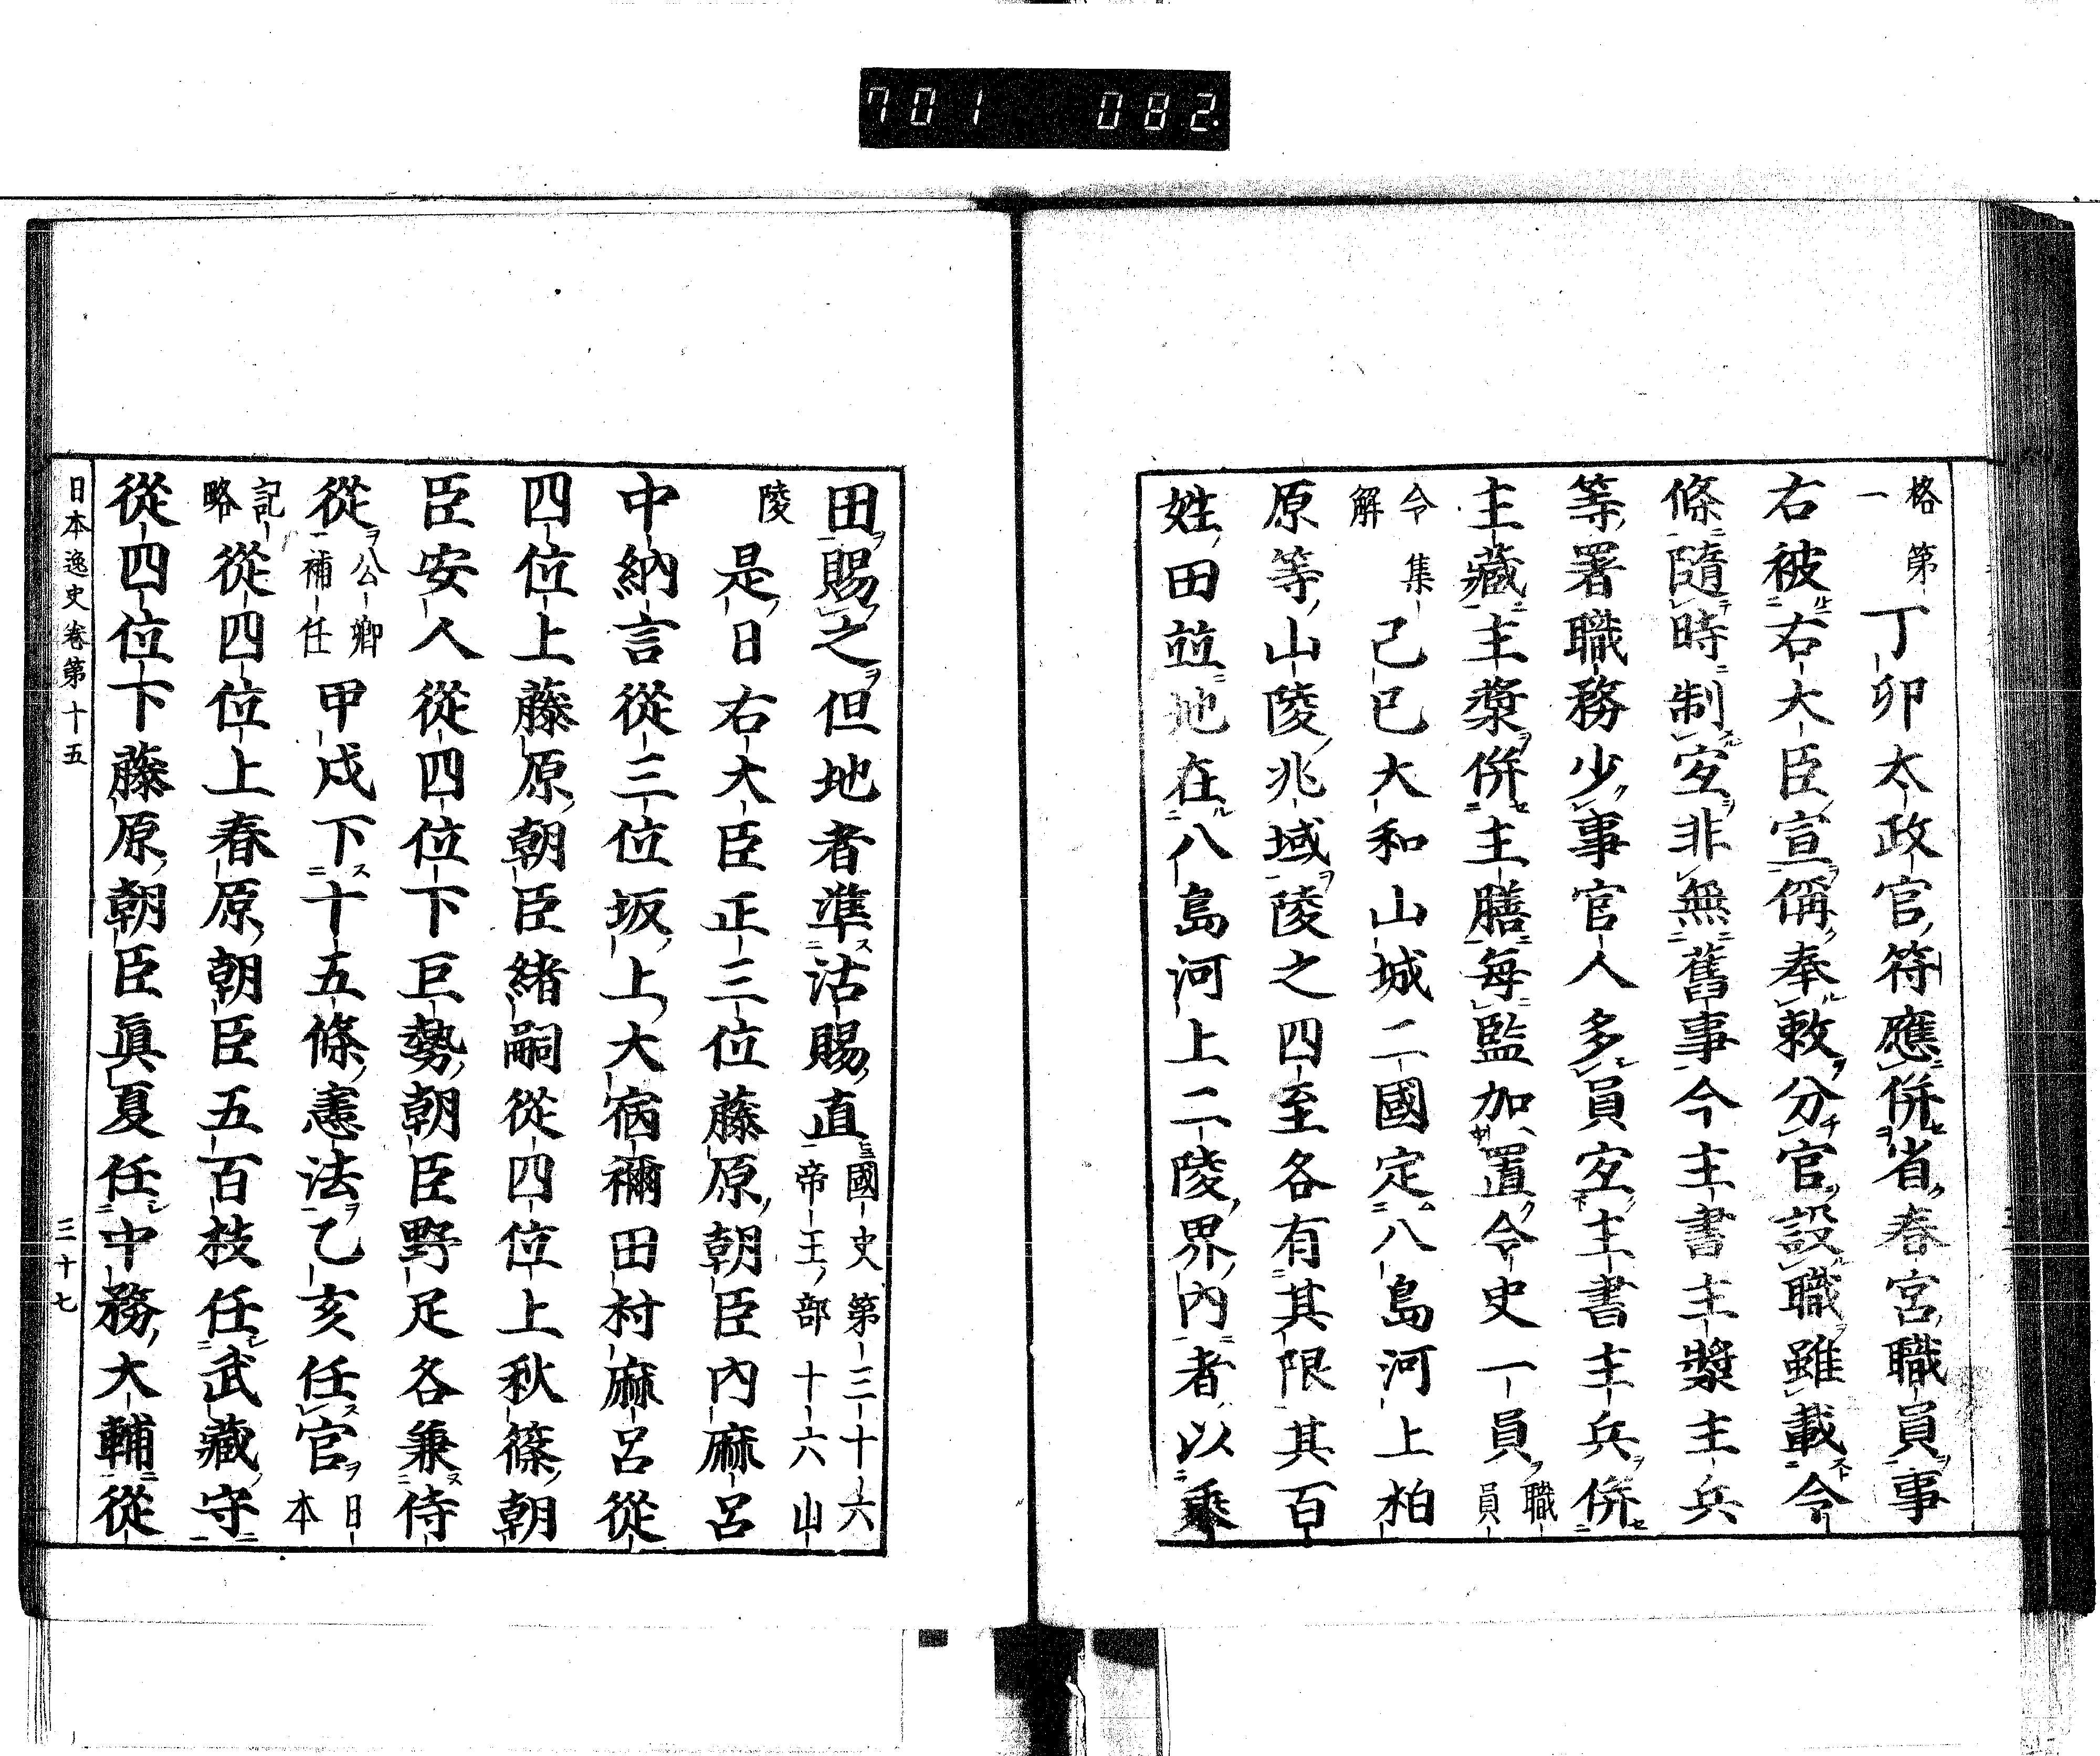 701 082
格第一丁卯太政官符應併省春宮職員事
右被右大臣宣偁奉敕分官設職雖載令
條隨時制宜非無舊事今主書主漿主兵
等署職務少事官人多員宜主書主兵併
主藏主漿併主膳每監加置令史一員職員
令集解己巳大和山城二國定八島河上柏
原等山陵兆域陵之四至各有其限其百
姓田竝地在八島河上二陵界內者以乘
田賜之但地者準沽賜直國史第三十六帝王部十六山
陵是日右大臣正三位藤原朝臣內麻呂
中納言從三位坂上大宿禰田村麻呂從
四位上藤原朝臣緒嗣從四位上秋篠朝
臣安人從四位下巨勢朝臣野足各兼侍
從公卿補任甲戌下十五條憲法乙亥任官日本
記略從四位上春原朝臣五百枝任武藏守
從四位下藤原朝臣眞夏任中務大輔從
日本逸史卷第十五 三十七